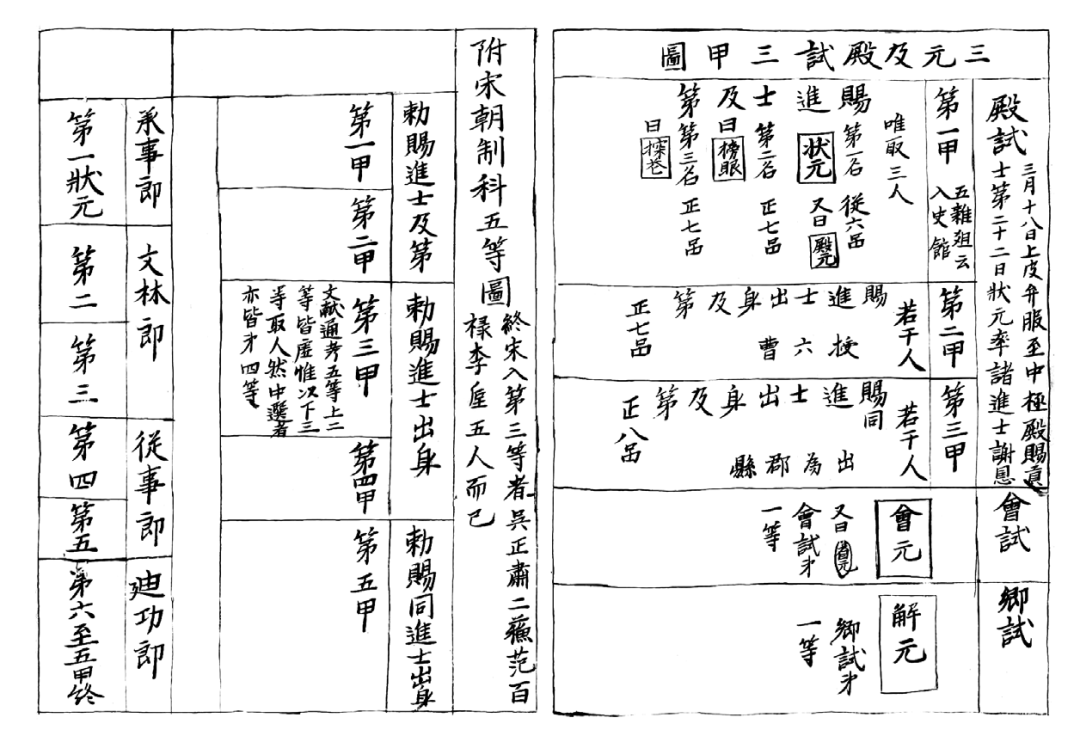 三元及殿試三甲圖
殿試
三月十八日上皮弁服至中極殿賜真
士第二十二日狀元率諸進士謝恩
第一甲
五雜爼云
入史館
唯取三人
賜進士及第
第一名 從六品
狀元
又曰殿元
第二名 正七品
曰榜眼
第三名 正七品
曰探花
第二甲
若干人
賜進士出身及第
授六曹
正七品
第三甲
若干人
賜同進士出身及第
出為郡縣
正八品
會試
會元
又曰
會試才
一等
鄉試
解元
鄉試才
一等
附宋朝制科五等圖
終宋入第三等者吳正肅二蘓范百
祿李垕五人而已
勅賜進士及第
勅賜進士出身
勅賜同進士出身
第一甲
第二甲
第三甲
文献通考五等上二
等皆虛惟次下三
等取人然中選者
亦皆才四等
第四甲
第五甲
承事郎
文林郎
從事郎
廸功郎
第一狀元
第二
第三
第四
第五
第六至五甲終